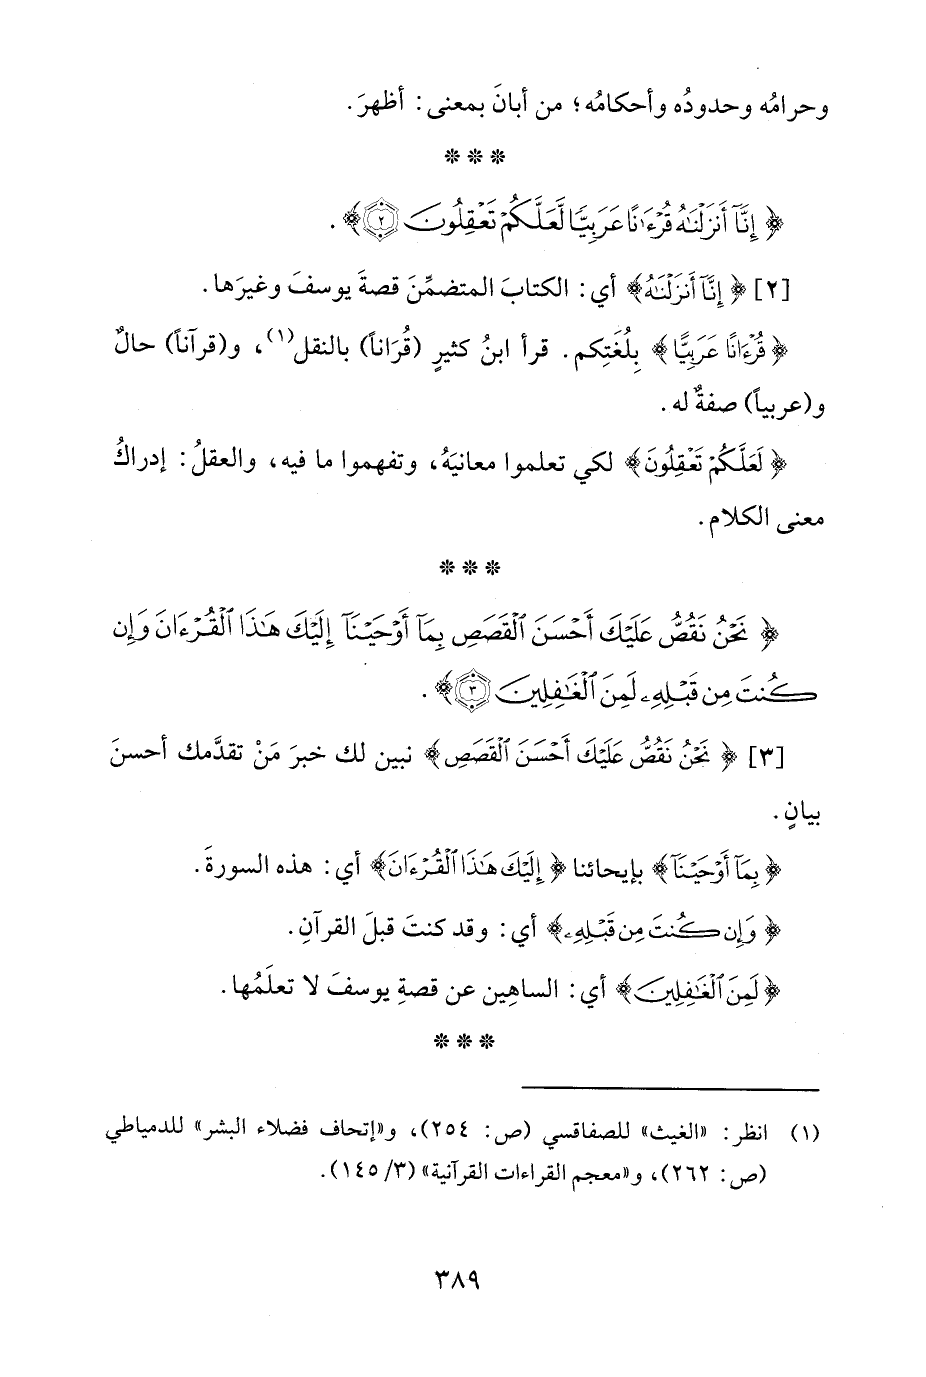 وحرامُه وحدودُه وأحكامُه؛ من أبانَ بمعنى: أظهرَ.
* * *
﴿إِنَّآ أَنزَلْنَٰهُ قُرْءَٰنًا عَرَبِيًّا لَّعَلَّكُمْ تَعْقِلُونَ ٢﴾.
[٢] ﴿إِنَّآ أَنزَلْنَٰهُ﴾ أي: الكتابَ المتضمِّنَ قصةَ يوسفَ وغيرَها.
﴿قُرْءَٰنًا عَرَبِيًّا﴾ بِلُغَتِكم. قرأ ابنُ كثيرٍ (قُرَاناً) بالنقل(١)، و(قرآناً) حالٌ
و(عربياً) صفةٌ له.
﴿لَعَلَّكُمْ تَعْقِلُونَ﴾ لكي تعلموا معانيَهُ، وتفهموا ما فيه، والعقلُ: إدراكُ
معنى الكلام.
* * *
﴿نَحْنُ نَقُصُّ عَلَيْكَ أَحْسَنَ ٱلْقَصَصِ بِمَآ أَوْحَيْنَآ إِلَيْكَ هَٰذَا ٱلْقُرْءَانَ وَإِن
كُنتَ مِن قَبْلِهِۦ لَمِنَ ٱلْغَٰفِلِينَ ٣﴾.
[٣] ﴿نَحْنُ نَقُصُّ عَلَيْكَ أَحْسَنَ ٱلْقَصَصِ﴾ نبين لك خبرَ مَنْ تقدَّمك أحسنَ
بيانٍ.
﴿بِمَآ أَوْحَيْنَآ﴾ بإيحائنا ﴿إِلَيْكَ هَٰذَا ٱلْقُرْءَانَ﴾ أي: هذه السورةَ.
﴿وَإِن كُنتَ مِن قَبْلِهِۦ﴾ أي: وقد كنتَ قبلَ القرآنِ.
﴿لَمِنَ ٱلْغَٰفِلِينَ﴾ أي: الساهِين عن قصةِ يوسفَ لا تعلَمُها.
* * *
(١) انظر: «الغيث» للصفاقسي (ص: ٢٥٤)، و«إتحاف فضلاء البشر» للدمياطي
(ص: ٢٦٢)، و«معجم القراءات القرآنية» (٣/ ١٤٥).
٣٨٩